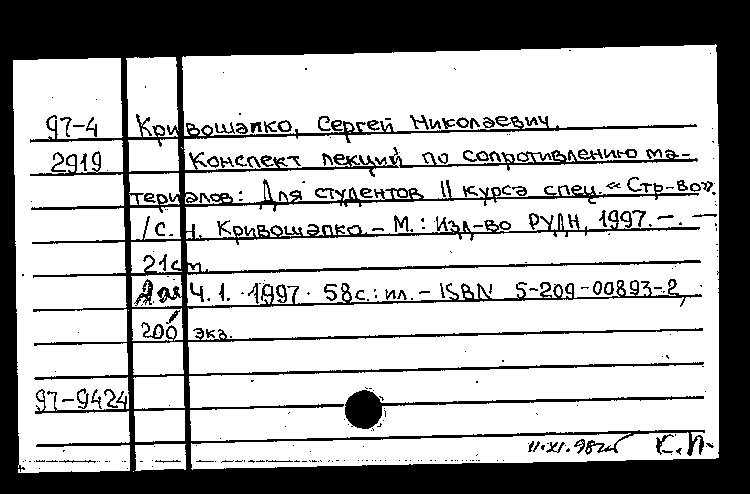 97-4 Кривошапко, Сергей Николаевич.
2919 Конспект лекций по сопротивлению ма-
териалов: Для студентов II курса спец. «Стр-во».
/С. Н. Кривошапко. - М.: Изд-во РУДН, 1997. -. -
21см.
Ч. 1. 1997. 58с.: ил. - ISBN 5-209-00893-2,
200 экз.
97-9424
11.XI.98г. К.П.